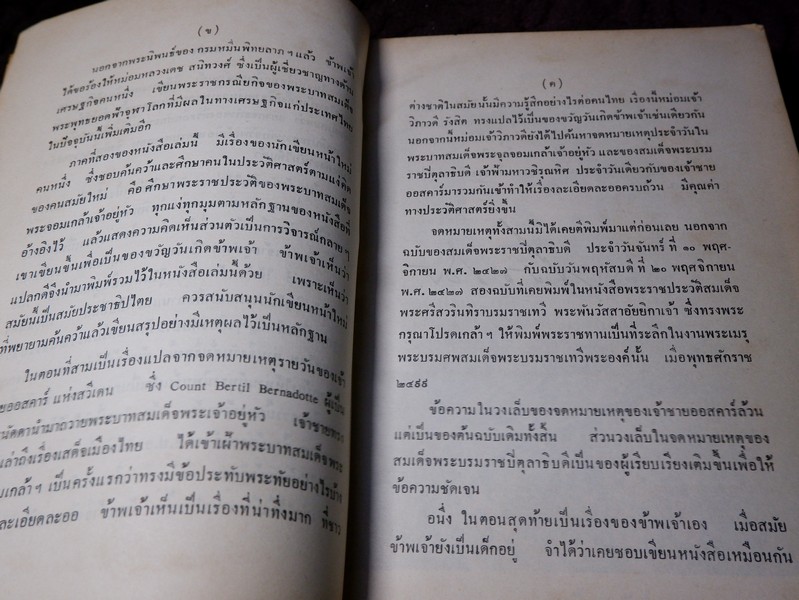 (ข)
นอกจากพระนิพนธ์ของ กรมหมื่นพิทยลาภ ฯ แล้ว ข้าพเจ้า
ได้ขอร้องให้หม่อมหลวงเดช สนิทวงศ์ ซึ่งเป็นผู้เชี่ยวชาญทางด้าน
เศรษฐกิจคนหนึ่ง เขียนพระราชกรณียกิจของพระบาทสมเด็จ
พระพุทธยอดฟ้าจุฬาโลกที่มีผลในทางเศรษฐกิจแก่ประเทศไทย
ในปัจจุบันนี้เพิ่มเติมอีก
ภาคที่สองของหนังสือเล่มนี้ มีเรื่องของนักเขียนหน้าใหม่
คนหนึ่ง ซึ่งชอบค้นคว้าและศึกษาคนในประวัติศาสตร์ตามแง่คิด
ของคนสมัยใหม่ คือ ศึกษาพระราชประวัติของพระบาทสมเด็จ
พระจอมเกล้าเจ้าอยู่หัว ทุกแง่ทุกมุมตามหลักฐานของหนังสือที่
อ้างอิงไว้ แล้วแสดงความคิดเห็นส่วนตัวเป็นการวิจารณ์กลาย ๆ
เขาเขียนขึ้นเพื่อเป็นของขวัญวันเกิดข้าพเจ้า ข้าพเจ้าเห็นว่า
แปลกดีจึงนำมาพิมพ์รวมไว้ในหนังสือเล่มนี้ด้วย เพราะเห็นว่า
สมัยนี้เป็นสมัยประชาธิปไตย ควรสนับสนุนนักเขียนหน้าใหม่
ที่พยายามค้นคว้าแล้วเขียนสรุปอย่างมีเหตุผลไว้เป็นหลักฐาน
ในตอนที่สามเป็นเรื่องแปลจากจดหมายเหตุรายวันของเจ้า
ชายออสคาร์ แห่งสวีเดน ซึ่ง Count Bertil Bernadotte ผู้เป็น
นัดดานำมาถวายพระบาทสมเด็จพระเจ้าอยู่หัว เจ้าชายทรง
เล่าถึงเรื่องเสด็จเมืองไทย ได้เข้าเฝ้าพระบาทสมเด็จพระ
เกล้า ฯ เป็นครั้งแรกว่าทรงมีข้อประทับพระทัยอย่างไรบ้าง
ละเอียดละออ ข้าพเจ้าเห็นเป็นเรื่องที่น่าทึ่งมาก ที่ชาว
(ค)
ต่างชาติในสมัยนั้นมีความรู้สึกอย่างไรต่อคนไทย เรื่องนี้หม่อมเจ้า
วิภาวดี รังสิต ทรงแปลไว้เป็นของขวัญวันเกิดข้าพเจ้าเช่นเดียวกัน
นอกจากนี้หม่อมเจ้าวิภาวดียังได้ไปค้นหาจดหมายเหตุประจำวันใน
พระบาทสมเด็จพระจุลจอมเกล้าเจ้าอยู่หัว และของสมเด็จพระบรม
ราชปิตุลาธิบดี เจ้าฟ้ามหาวชิรุณหิศ ประจำวันเดียวกับของเจ้าชาย
ออสคาร์มารวมกันเข้าทำให้เรื่องละเอียดละออครบถ้วน มีคุณค่า
ทางประวัติศาสตร์ยิ่งขึ้น
จดหมายเหตุทั้งสามนี้มิได้เคยตีพิมพ์มาแต่ก่อนเลย นอกจาก
ฉบับของสมเด็จพระราชปิตุลาธิบดี ประจำวันจันทร์ ที่ ๑๐ พฤศ-
จิกายน พ.ศ. ๒๔๒๗ กับฉบับวันพฤหัสบดี ที่ ๒๐ พฤศจิกายน
พ.ศ. ๒๔๒๗ สองฉบับที่เคยพิมพ์ในหนังสือพระราชประวัติสมเด็จ
พระศรีสวรินทิราบรมราชเทวี พระพันวัสสาอัยยิกาเจ้า ซึ่งทรงพระ
กรุณาโปรดเกล้า ฯ ให้พิมพ์พระราชทานเป็นที่ระลึกในงานพระเมรุ
พระบรมศพสมเด็จพระบรมราชเทวีพระองค์นั้น เมื่อพุทธศักราช
๒๔๙๙
ข้อความในวงเล็บของจดหมายเหตุของเจ้าชายออสคาร์ล้วน
แต่เป็นของต้นฉบับเดิมทั้งสิ้น ส่วนวงเล็บในจดหมายเหตุของ
สมเด็จพระบรมราชปิตุลาธิบดีเป็นของผู้เรียบเรียงเติมขึ้นเพื่อให้
ข้อความชัดเจน
อนึ่ง ในตอนสุดท้ายเป็นเรื่องของข้าพเจ้าเอง เมื่อสมัย
ข้าพเจ้ายังเป็นเด็กอยู่ จำได้ว่าเคยชอบเขียนหนังสือเหมือนกัน